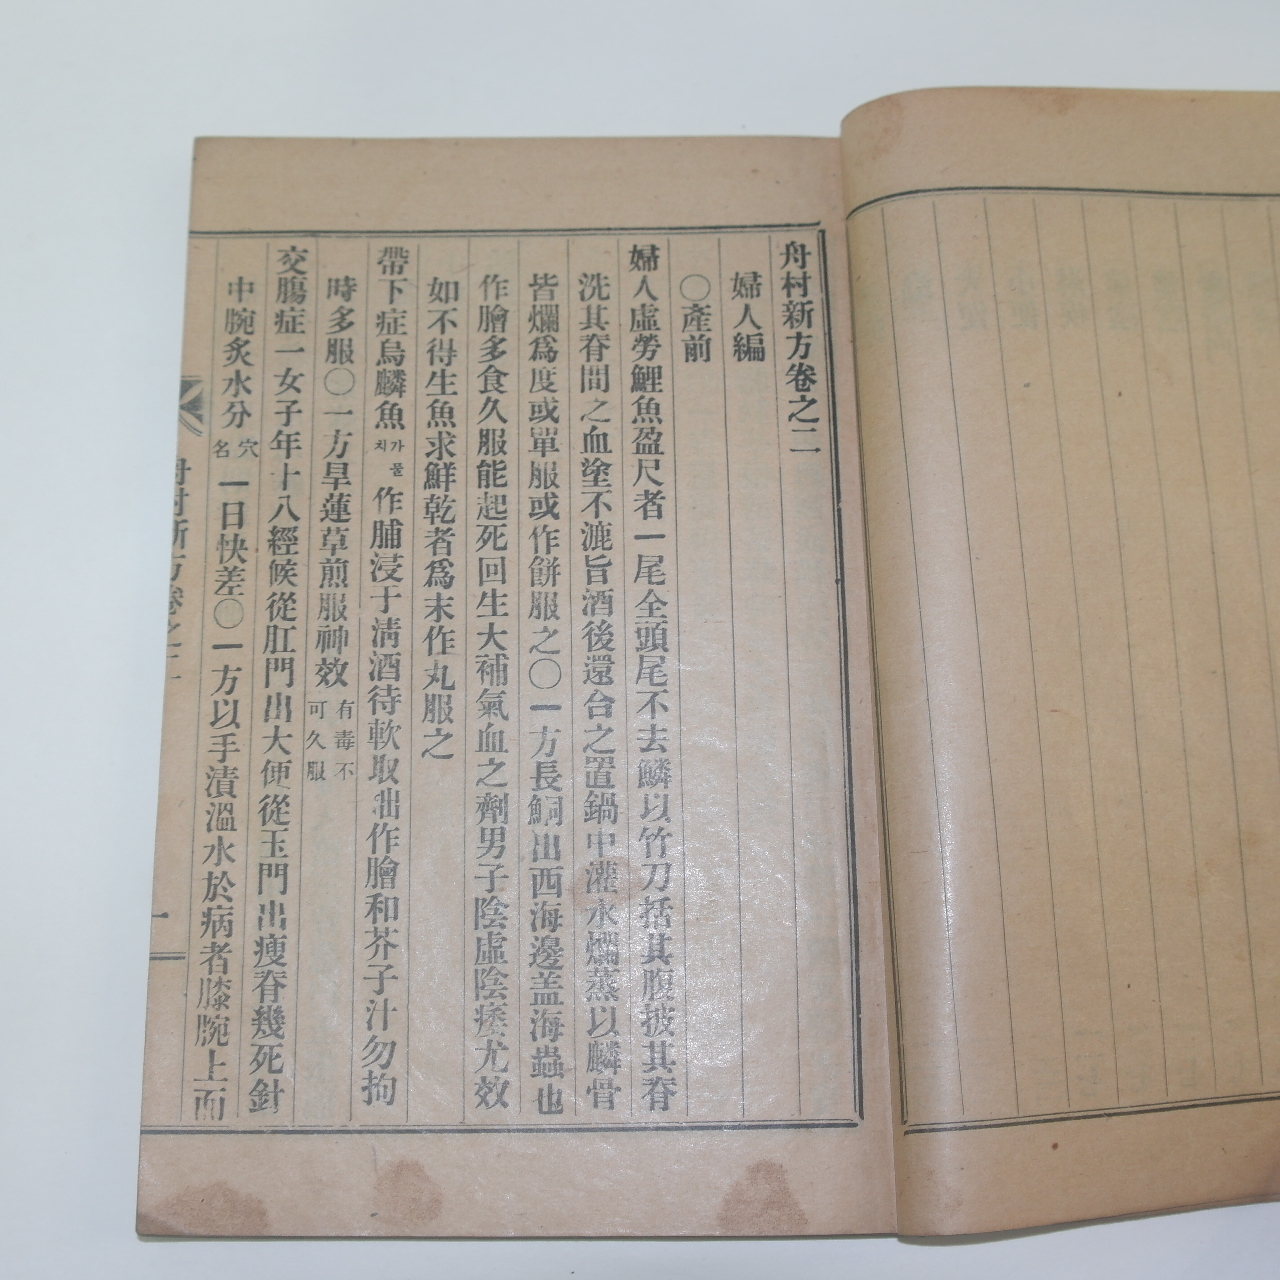 舟村新方卷之二
婦人編
○產前
婦人虛勞鯉魚盈尺者一尾全頭尾不去鱗以竹刀括其腹披其脊
洗其脊間之血塗不漉旨酒後還合之置鍋中灌水爛蒸以麟骨
皆爛爲度或單服或作餠服之○一方長鮦出西海邊盖海蟲也
作膾多食久服能起死回生大補氣血之劑男子陰虛陰痿尤效
如不得生魚求鮮乾者爲末作丸服之
帶下症烏麟魚가물치作脯浸于淸酒待軟取出作膾和芥子汁勿拘
時多服○一方旱蓮草煎服神效有毒不可久服
交膓症一女子年十八經候從肛門出大便從玉門出瘦脊幾死針
中腕炙水分穴名一日快差○一方以手漬溫水於病者膝腕上面
舟村新方卷之二
一